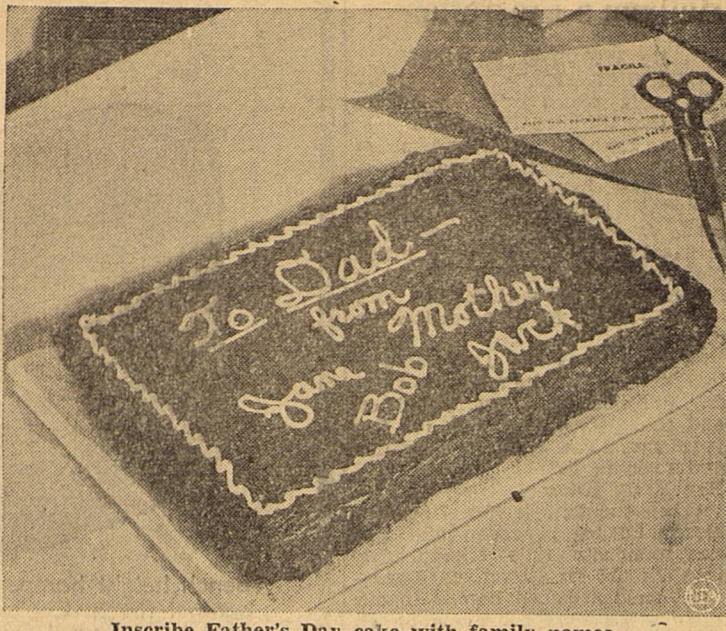 FRAGILE
To Dad —
from Mother
Jane Bob Jack
Inscribe Father's Day cake with family names.